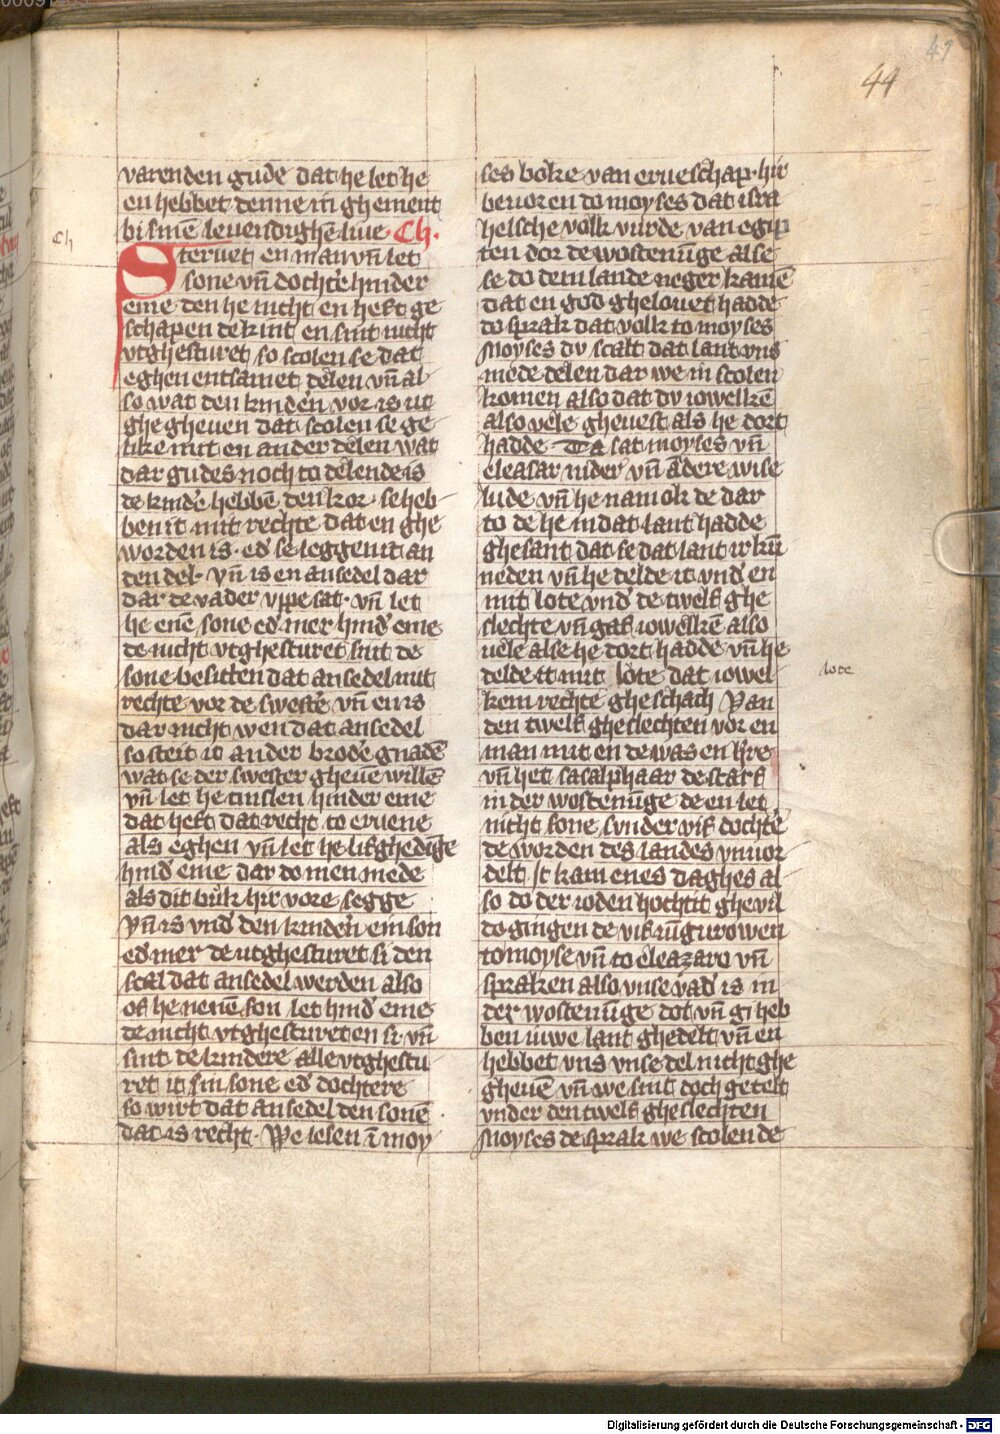 44
varenden gude dat he let he
en hebbet denne in ghement
bi sinē leuendighē liue · Ch.
Ch
Steruet en man vn̄ let
sone vn̄ dochtē hinder
eme den he nicht en heft ge
schapen de kint en sint nicht
vtghesturet so scolen se dat
eghen entsamet delen vn̄ al
so wat den kindēn vor is ut
ghegheuen dat scolen se ge
like mit en ander delen wat
dar gudes noch to delende is
de kindē hebbē den kor · se heb
ben it mit rechte dat en ghe
worden is · ed̄ se leggen it an
den del · vn̄ is en ansedel dar
dar de vader vppe sat · vn̄ let
he enē sone ed̄ mer hind̄ eme
de nicht vtghesturet sint de
sone besitten dat ansedel mit
rechte vor de swestē vn̄ en is
dar nicht wen dat ansedel
so steit it an der brodē gnadē
wat se der swester gheuē willē
vn̄ let he tinslen hinder eme
dat heft dat recht to eruene
als eghen vn̄ let he lifghedīge
hind̄ eme dar do men mede
als dit buk hir vore segge
vn̄ is vnd̄ den kindēn ein son
ed̄ mer de vtghesturet si den
scal dat ansedel werden also
of he nenē son let hind̄ eme
de nicht vtghesturet en si vn̄
sint de kindere alle vtghestu
ret it sin sone ed̄ dochtere
so wirt dat ansedel den sonē
dat is recht · We lesen ī moy
ses boke van erueschap · hir
beuoren do moyses dat isra
helsche volk vurde van egip
ten dor de wostenūge alse
se do dem lande neger kamē
dat en god ghelouet hadde
do sprak dat volk to moyses
Moyses dv scalt dat lant vns
mede delen dar we in scolen
komen also dat dv iowelkē
also vele gheuest als he dort
hadde Da sat moyses vn̄
eleasar nider vn̄ ādere wise
lude vn̄ he nam ok de dar
to de he in dat lant hadde
ghesant dat se dat lant irkū
neden vn̄ he delde it vnd̄ en
mit lote vnd̄ de twelf ghe
slechte vn̄ gaf iowelkē also
uele alse he dort hadde vn̄ he
delde it mit lote dat iowel
lote
kem rechte gheschach Van
den twelf gheslechten vor en
man mit en de was en here
vn̄ het sasalphaar de starf
in der wostenūge de en let
nicht sone svnder vif dochtē
de worden des landes vnuor
delt It kam enes daghes al
so do der ioden hochtit ghevil
do gingen de vif iūgurowen
to moyse vn̄ to eleazaro vn̄
spraken also vnse vad̄ is in
der wostenūge dot vn̄ gi heb
ben iuwe lant ghedelt vn̄ en
hebbet vns vnse del nicht ghe
gheuē vn̄ we sint doch getelt
vnder den twelf gheslechten
Moyses de sprak we scolen de
Digitalisierung gefördert durch die Deutsche Forschungsgemeinschaft - DFG